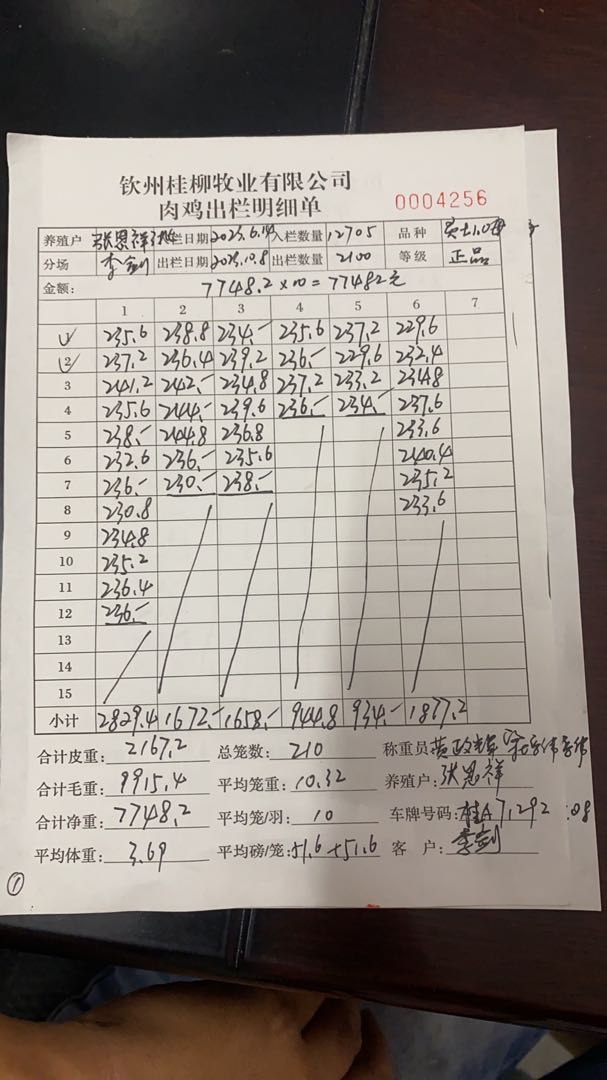 钦州桂柳牧业有限公司
肉鸡出栏明细单
0004256
养殖户 张恩祥 入栏日期 2023.6.14 入栏数量 12705 品种
分场 李剑 出栏日期 2023.10.8 出栏数量 2100 等级 正品
金额: 7748.2×10=77482元
1 2 3 4 5 6 7
1 235.6 238.8 234.- 235.6 237.2 229.6
2 237.2 236.4 239.2 236.- 229.6 232.4
3 241.2 242.- 234.8 237.2 233.2 234.8
4 235.6 244.- 239.6 236.- 234.- 237.6
5 238.- 244.8 236.8 233.6
6 232.6 236.- 235.6 240.4
7 236.- 230.- 238.- 235.2
8 230.8 233.6
9 234.8
10 235.2
11 236.4
12 236.-
13
14
15
小计 2829.4 1672.- 1658.- 944.8 934.- 1877.2
合计皮重: 2167.2 总笼数: 210 称重员
合计毛重: 9915.4 平均笼重: 10.32 养殖户: 张恩祥
合计净重: 7748.2 平均笼/羽: 10 车牌号码: 桂A7292 :08
平均体重: 3.69 平均磅/笼: 51.6+51.6 客 户: 李剑
①